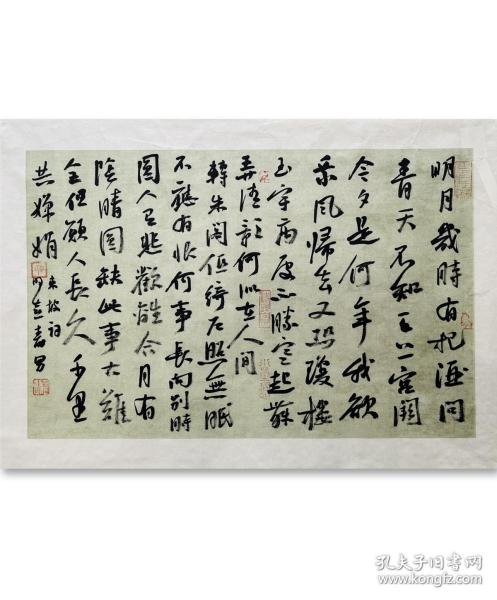 明月幾時有把酒問
青天不知天上宮闕
今夕是何年我欲
乘风歸去又恐瓊樓
玉宇高處不勝寒起舞
弄清影何似在人間
轉朱閣低綺戶照無眠
不應有恨何事長向別時
圓人有悲歡離合月有
陰晴圓缺此事古難
全但願人長久千里
共嬋娟
東坡詞
孔夫子旧书网
kongfz.com